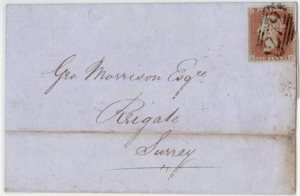 Geo Morrison Esqre
Reigate
Surrey